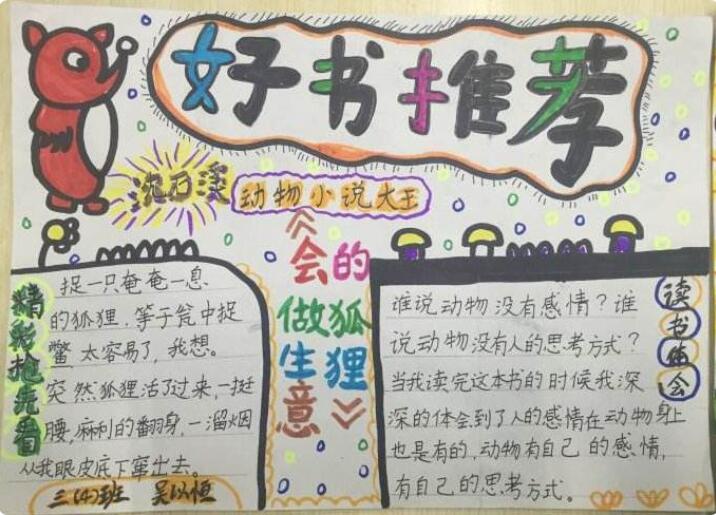 好书推荐
沈石溪
动物小说大王
《会做生意
的狐狸》
精彩抢先看
捉一只奄奄一息
的狐狸,等于瓮中捉
鳖,太容易了,我想。
突然狐狸活了过来,一挺
腰,麻利的翻身,一溜烟
从我眼皮底下窜出去。
三(4)班 吴以恒
读书体会
谁说动物没有感情?谁
说动物没有人的思考方式?
当我读完这本书的时候我深
深的体会到了人的感情在动物身上
也是有的,动物有自己的感情,
有自己的思考方式。